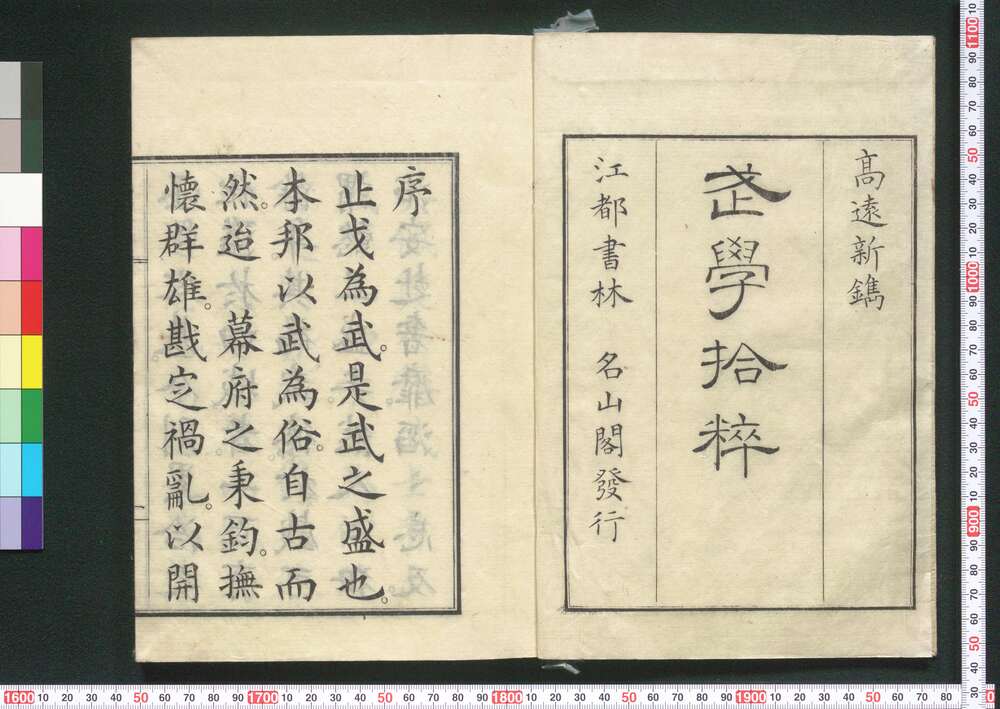 高遠新鐫
武學拾粹
江都書林　名山閣發行
序
止戈為武。是武之盛也。
本邦以武為俗。自古而
然。迨　幕府之秉鈞。撫
懷群雄。戡定禍亂。以開